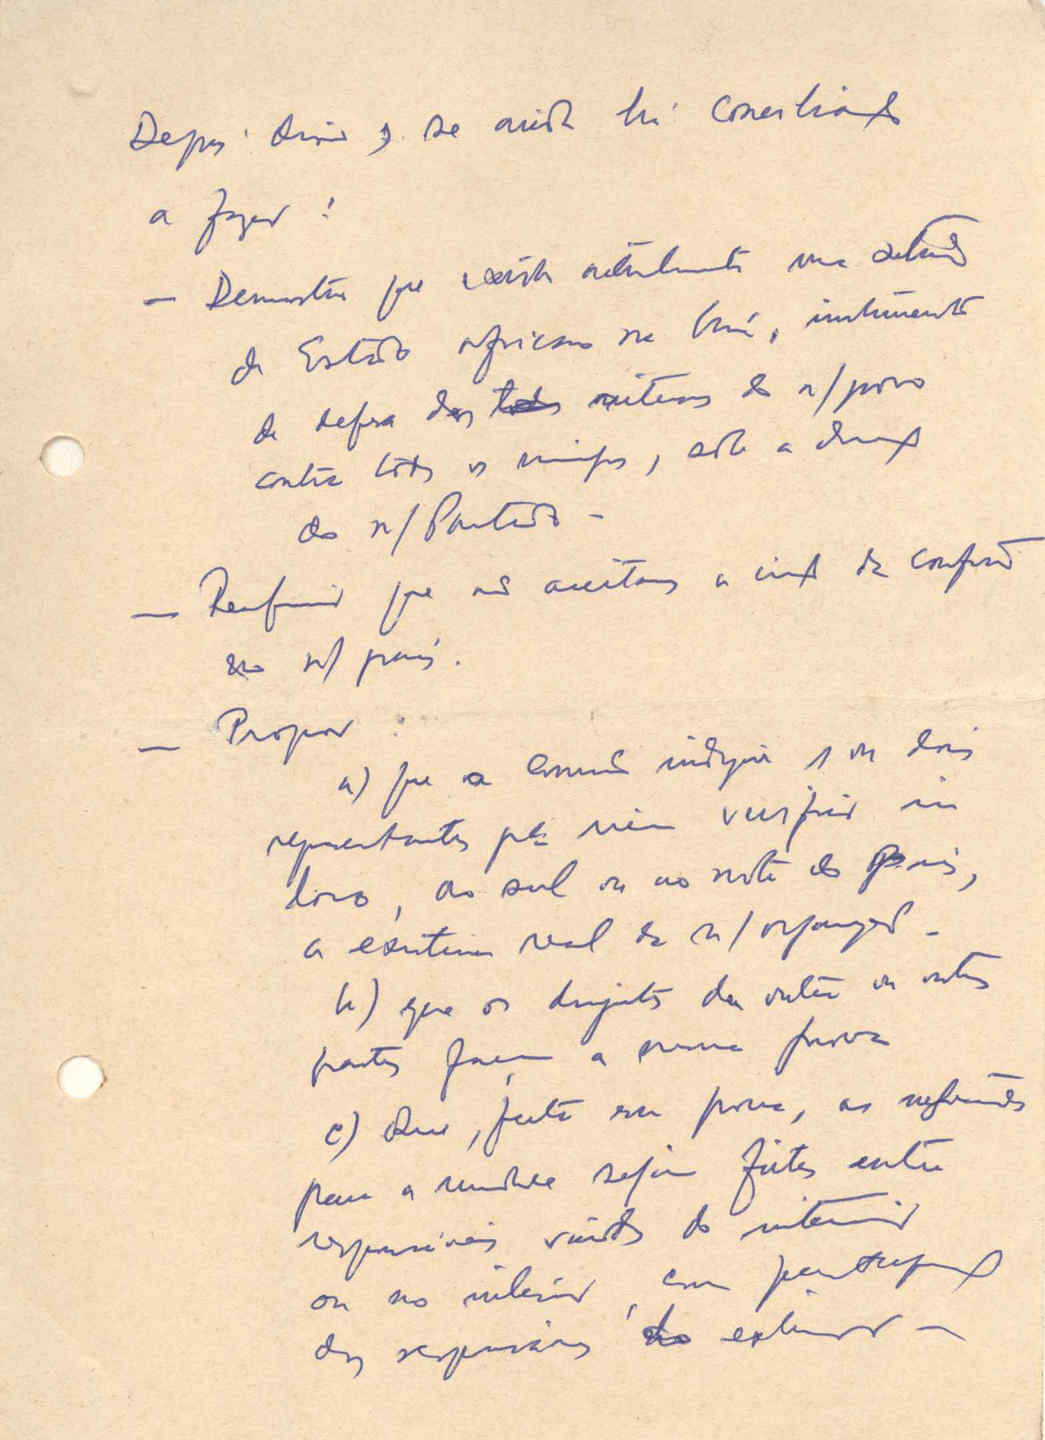 Depois disso, se ainda há conciliação
a fazer:
— Demonstrar que existe actualmente uma
de Estado africano na Guiné, instrumento
de defesa dos todos interesses do n/povo
contra todos os inimigos, sob a direcção
do n/Partido —
— Reafirmar que não aceitamos a de confusão
no n/ país.
— Propor:
a) que a Comissão indique 1 ou dois
representantes para virem verificar in
loco, ao sul ou ao norte do País,
a existência real da n/organização —
b) que os dirigentes da outra ou outras
partes façam a mesma prova
c) Que, feita essa prova, as
para a unidade sejam feitas entre
responsáveis vindos do interior
ou no interior, com participação
dos responsáveis do exterior —